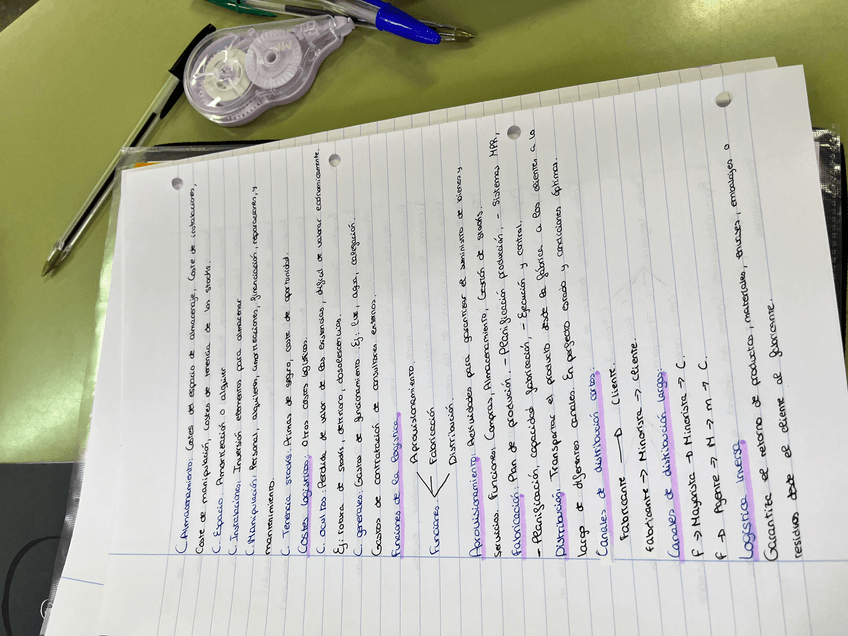 C. Almacenamiento: Costes de espacio de almacenaje, Coste de instalaciones,
Coste de manipulación, costes de tenencia de los stocks.
C. Espacio: Amortización o alquiler
C. Instalaciones: Inversión elementos para almacenar
C. Manipulación: Personal, alquileres, amortizaciones, financiación, reparaciones, y
mantenimiento.
C. Tenencia stocks: Primas de seguro, coste de oportunidad.
Costes logísticos: Otros costes logísticos.
C. ocultos: Perdida de valor de las existencias, difícil de valorar económicamente.
Ej: rotura de stocks, deterioro, obsolescencias.
C. generales: Gastos de funcionamiento Ej: luz, agua, calefacción.
Gastos de contratación de consultores externos.
Funciones de la logística.
Aprovisionamiento.
Funciones Fabricación
Distribución.
Aprovisionamiento: Actividades para garantizar el suministro de bienes y
servicios. Funciones: Compras, Almacenamiento, Gestión de stocks.
Fabricación: Plan de producción. - Planificación producción, - Sistemas MPR,
- Planificación, capacidad fabricación, - Ejecución y control.
Distribución: Transportar el producto desde la fábrica a los clientes a lo
largo de diferentes canales. En perfecto estado y condiciones óptimas.
Canales de distribución cortos:
Fabricante → Cliente.
Fabricante → Minorista → Cliente.
Canales de distribución largos:
F → Mayorista → Minorista → C.
F → Agente → M → m → C.
Logística Inversa
Garantiza el retorno de productos, materiales, envases, embalajes o
residuos desde el cliente al fabricante.